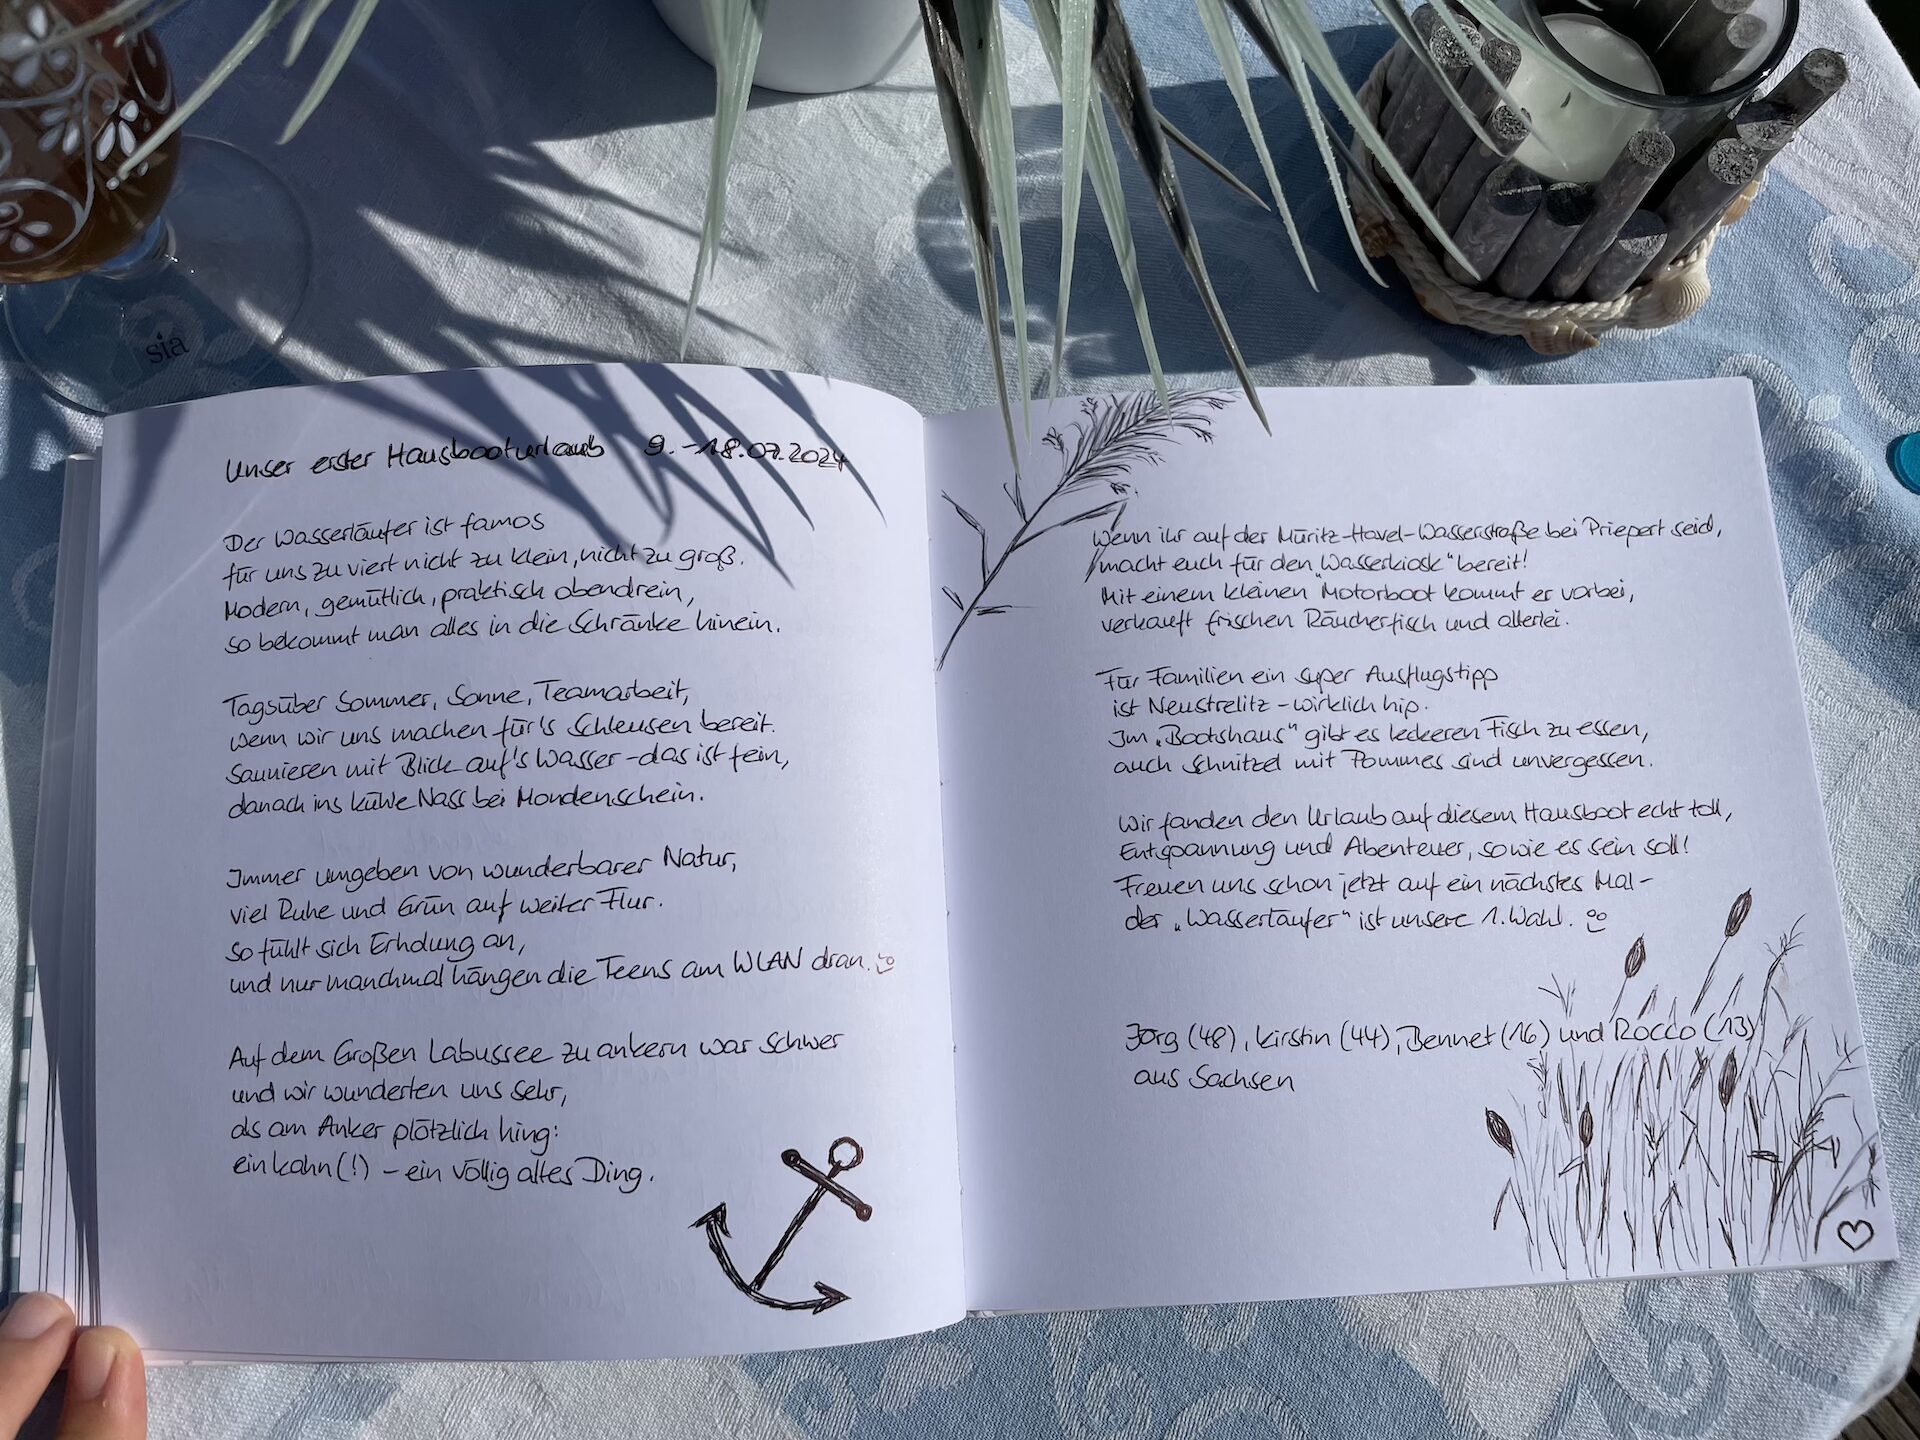 sia
Unser erster Hausbooturlaub 9.-18.07.2024
Der Wasserläufer ist famos
für uns zu viert nicht zu klein, nicht zu groß.
Modern, gemütlich, praktisch obendrein,
so bekommt man alles in die Schränke hinein.
Tagsüber Sommer, Sonne, Teamarbeit,
wenn wir uns machen für's Schleusen bereit.
Saunieren mit Blick auf's Wasser - das ist fein,
danach ins kühle Nass bei Mondenschein.
Immer umgeben von wunderbarer Natur,
viel Ruhe und Grün auf weiter Flur.
So fühlt sich Erholung an,
und nur manchmal hängen die Teens am WLAN dran.
Auf dem Großen Labussee zu ankern war schwer
und wir wunderten uns sehr,
als am Anker plötzlich hing:
ein Kahn (!) - ein völlig altes Ding.
Wenn ihr auf der Müritz-Havel-Wasserstraße bei Priepert seid,
macht euch für den "Wasserkiosk" bereit!
Mit einem kleinen Motorboot kommt er vorbei,
verkauft frischen Räucherfisch und allerlei.
Für Familien ein super Ausflugstipp
ist Neustrelitz - wirklich hip.
Im „Bootshaus" gibt es leckeren Fisch zu essen,
auch Schnitzel mit Pommes sind unvergessen.
Wir fanden den Urlaub auf diesem Hausboot echt toll,
Entspannung und Abenteuer, so wie es sein soll!
Freuen uns schon jetzt auf ein nächstes Mal -
der „Wasserläufer" ist unsere 1. Wahl.
Jörg (48), Kirstin (44), Bennet (16) und Rocco (13)
aus Sachsen